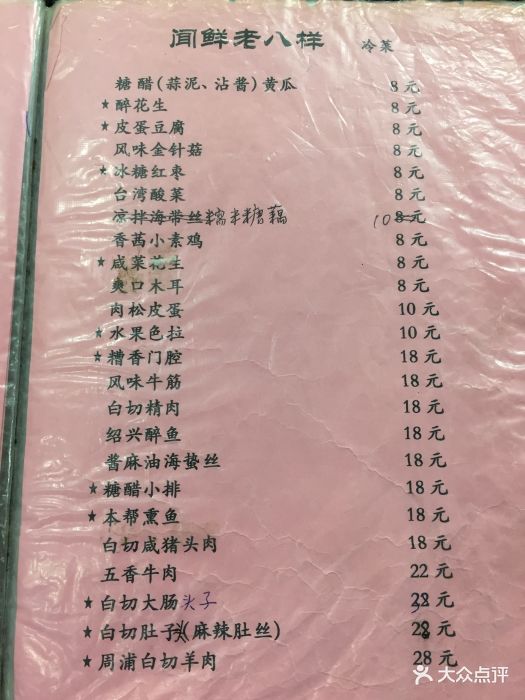 闻鲜老八样 冷菜
糖醋(蒜泥、沾酱)黄瓜 8元
★醉花生 8元
★皮蛋豆腐 8元
风味金针菇 8元
★冰糖红枣 8元
台湾酸菜 8元
凉拌海带丝糯米糖藕 108元
香茜小素鸡 8元
★咸菜花生 8元
爽口木耳 8元
肉松皮蛋 10元
★水果色拉 10元
★糟香门腔 18元
风味牛筋 18元
白切精肉 18元
绍兴醉鱼 18元
酱麻油海蛰丝 18元
★糖醋小排 18元
★本帮熏鱼 18元
白切咸猪头肉 18元
五香牛肉 22元
★白切大肠头子 元
★白切肚子(麻辣肚丝) 28元
★周浦白切羊肉 28元
大众点评